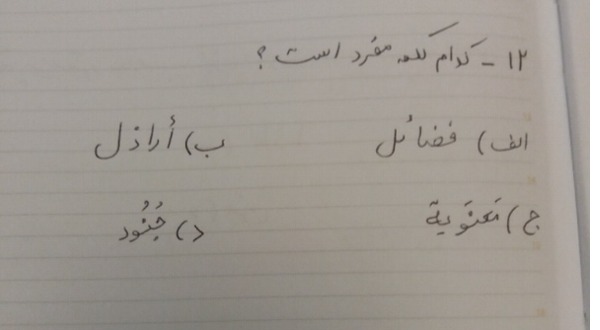 ۱۲ - کدام کلمه مفرد است؟
الف) فضائل ب) أراذل
ج) مَعنَویة د) جُنُود